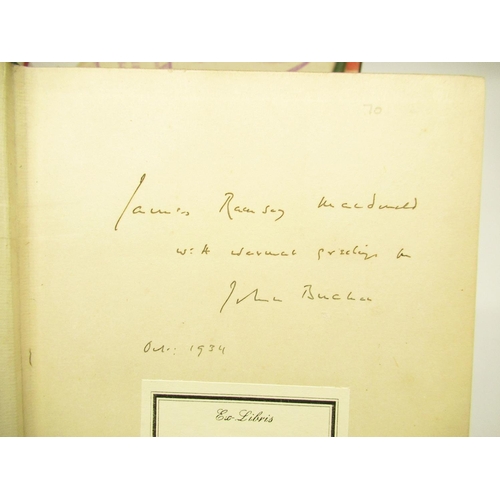 70
James Ramsay Macdonald
with warmest greetings from
John Buchan
Oct: 1934
Ex-Libris